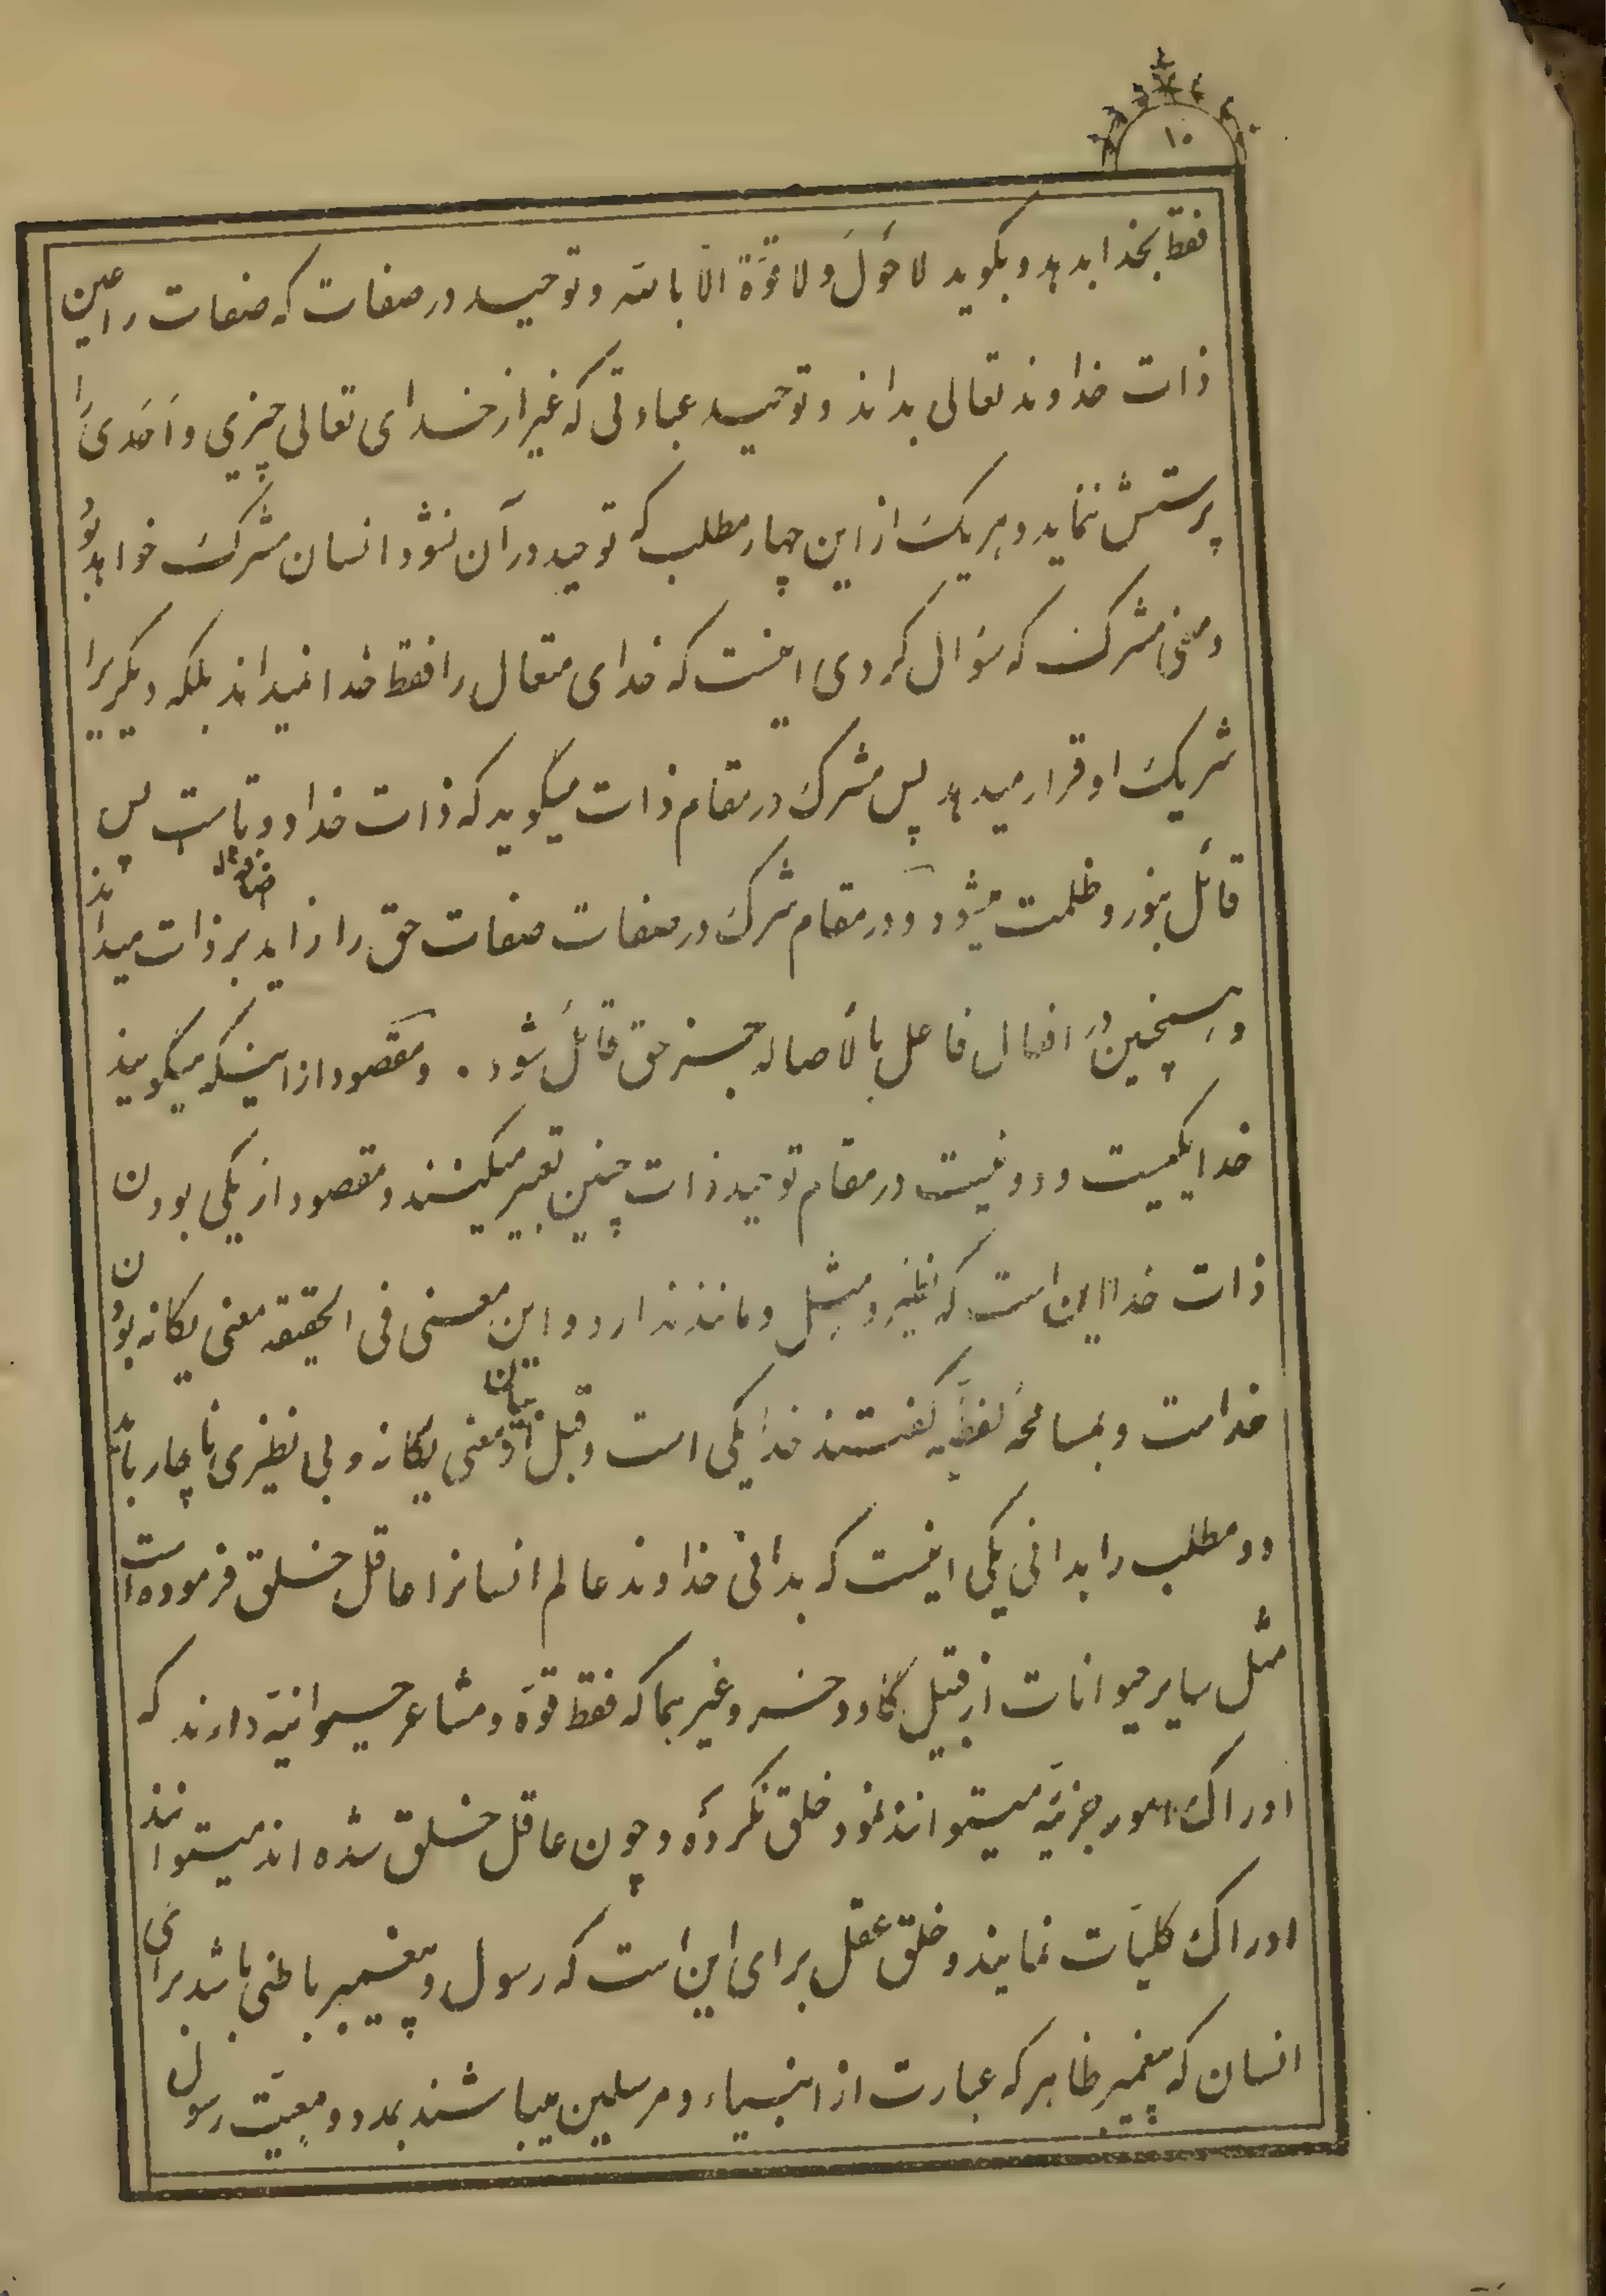 ۱۰
فقط بخدا بدهد و بگوید لا حَولَ و لا قوَّة الّا بالله و توحید در صفات که صفات را عین
ذات خداوند تعالی بداند و توحید عبادتی که غیر از خدای تعالی چیزی و اَحَدی را
پرستش ننماید و هر یک از این چهار مطلب که توحید در آن نشود انسان مشرک خواهد بود
و معنی مشرک که سؤال کردی اینست که خدای متعال را فقط خدا نمیداند بلکه دیگریرا
شریک او قرار میدهد پس مشرک در مقام ذات میگوید که ذات خدا دوتاست پس
قائل بنور و ظلمت میشود و در مقام شرک در صفات صفات حق را زاید بر ذات میداند
و همچنین در افعال فاعل بالأصاله جز حق قائل شود . و مقصود از اینکه میگویند
خدا یکیست و دو نیست در مقام توحید ذات چنین تعبیر میکنند و مقصود از یکی بودن
ذات خدا این است که نظیر و مِثل و مانند ندارد و این معنی فی الحقیقه معنی یگانه بودن
خداست و بمسامحهٔ لفظیّه گفتند خدا یکی است و قبل از بیان معنی یگانه و بی نظیری ناچار باید
دو مطلب را بدانی یکی اینست که بدانی خداوند عالم انسانرا عاقل خلق فرموده است
مثل سایر حیوانات از قبیل گاو و خر و غیر هما که فقط قوّه و مشاعر حیوانیّه دارند که
ادراک امور جزئیّه میتوانند نمود خلق نکرده و چون عاقل خلق شده‌اند میتوانند
ادراک کلیّات نمایند و خلق عقل برای این است که رسول و پیغمبر باطنی باشد برای
انسان که پیغمبر ظاهر که عبارت از انبیاء و مرسلین میباشند بمدد و معیّت رسول